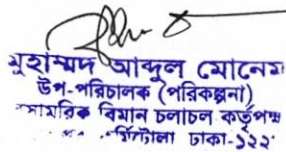 মুহাম্মদ আব্দুল মোনেম
উপ-পরিচালক (পরিকল্পনা)
বিমান চলাচল কর্তৃপক্ষ
ঢাকা-১২২